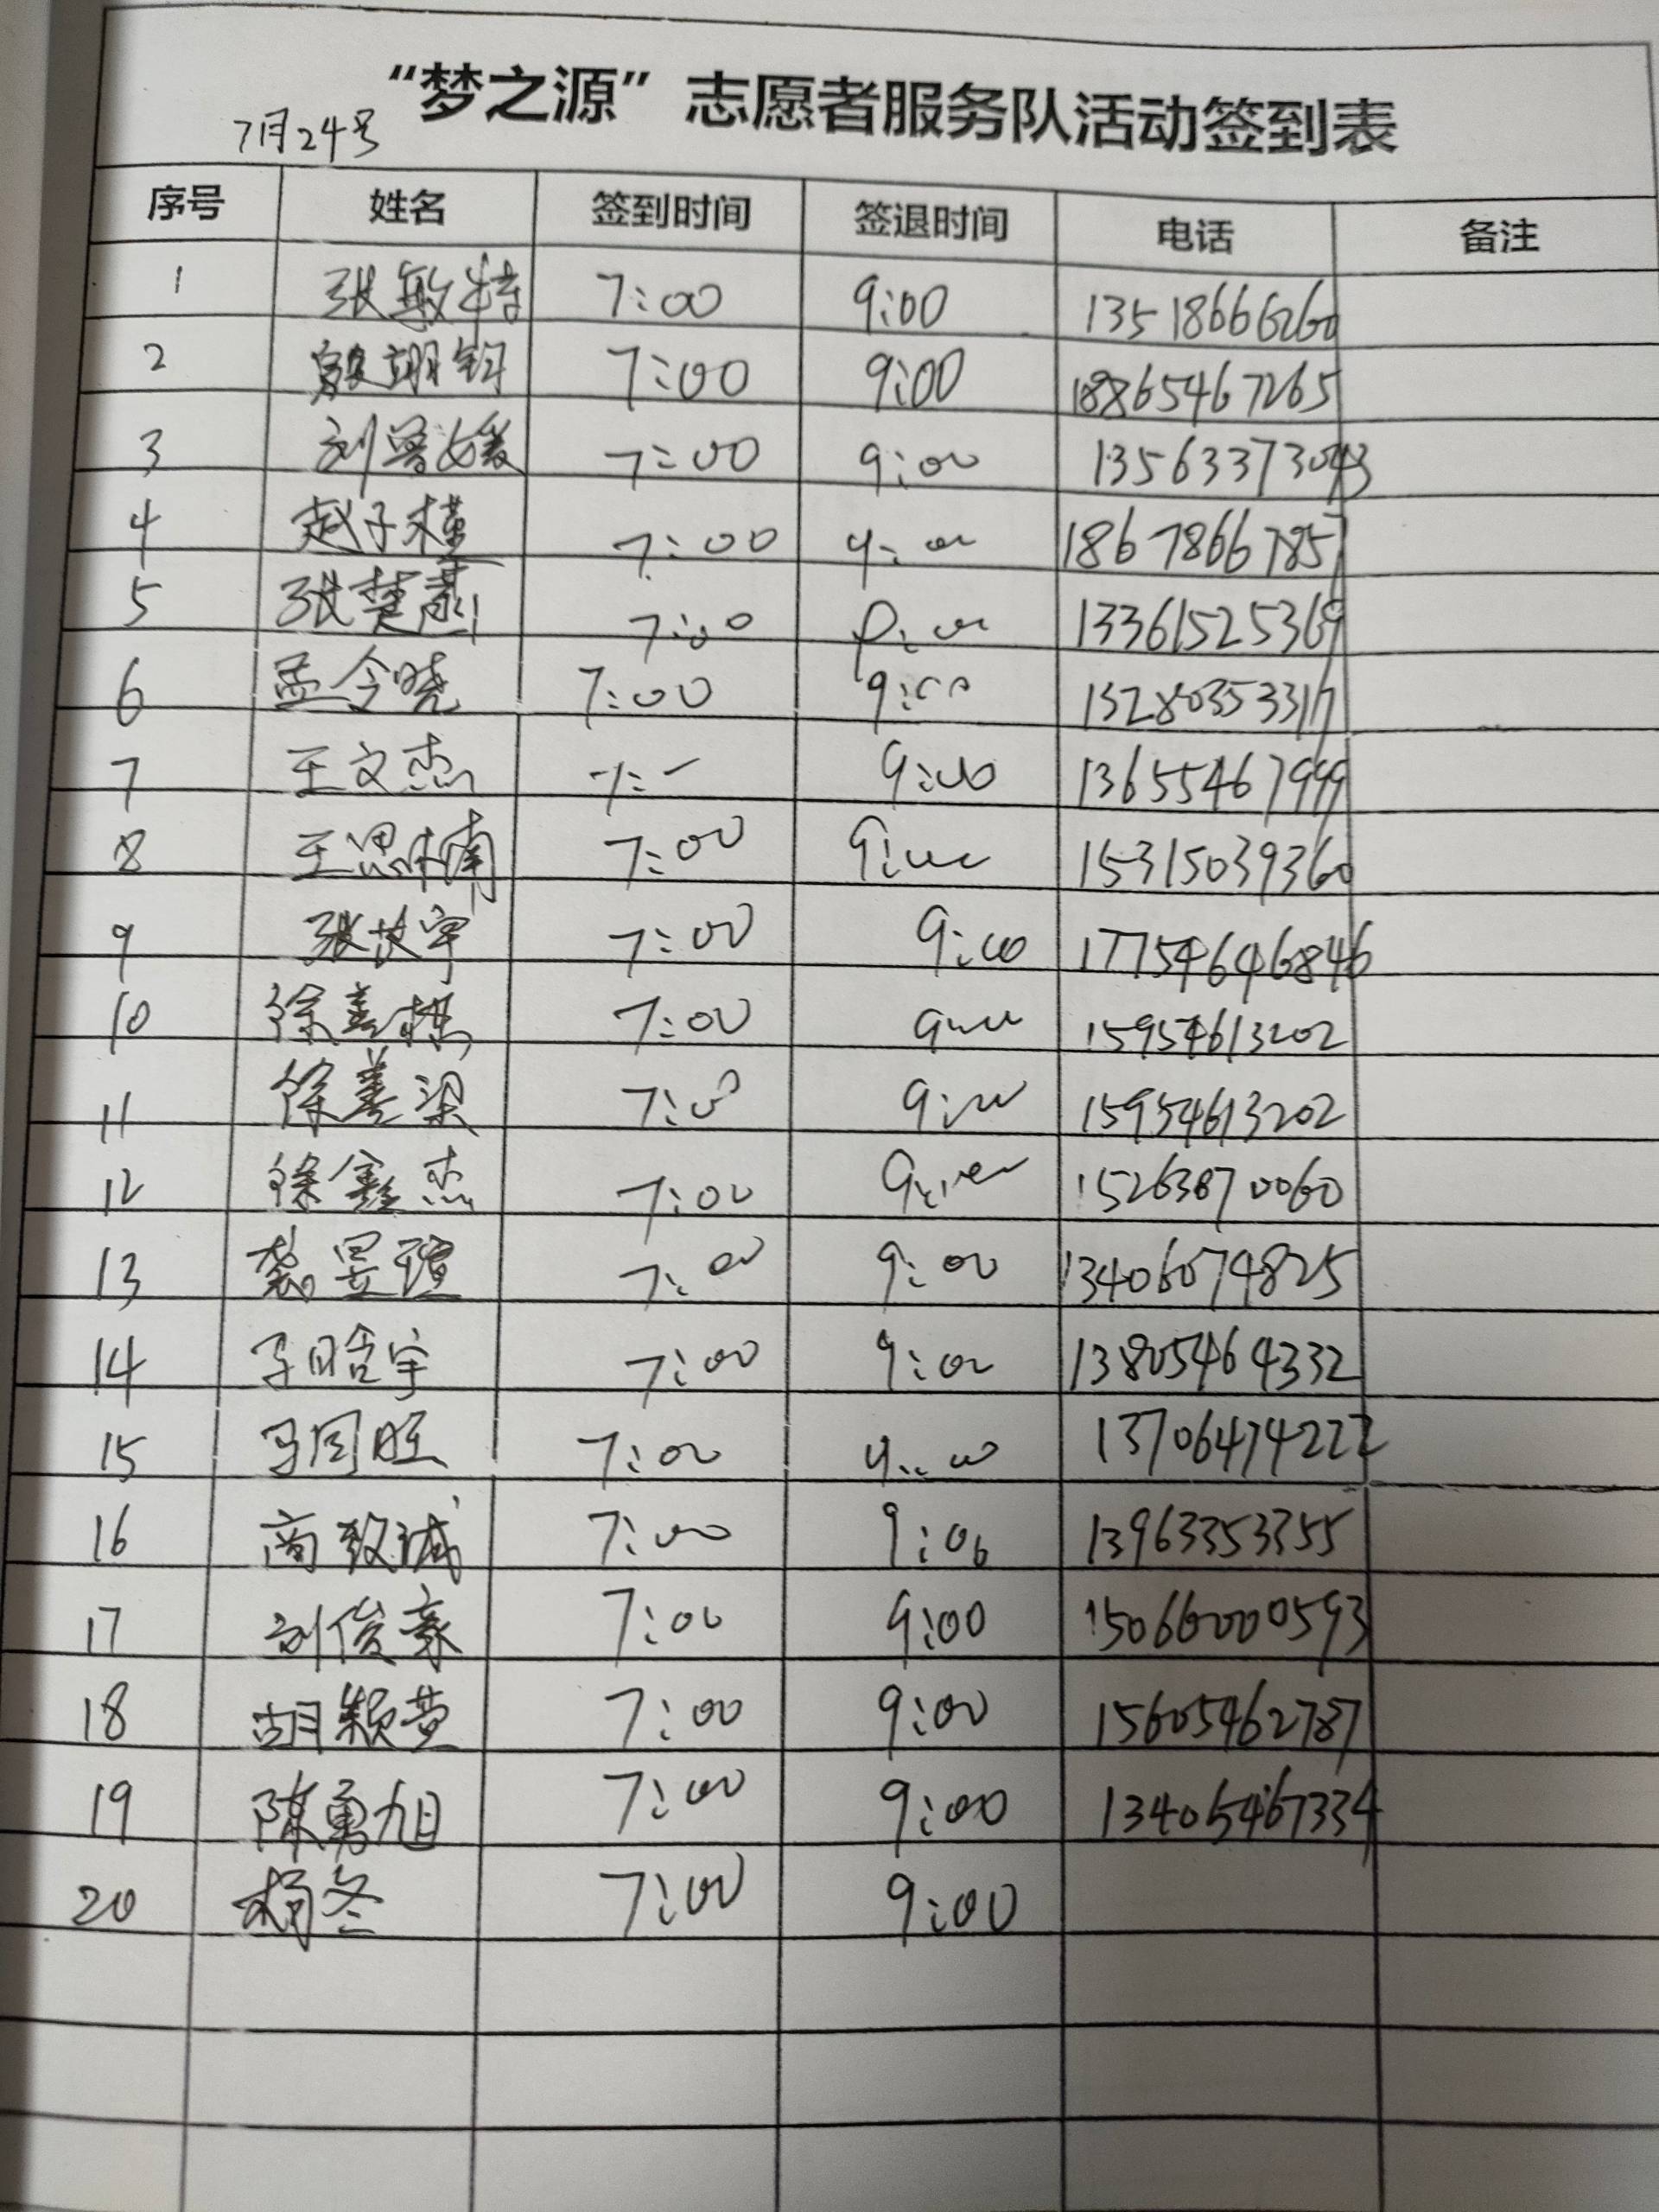 “梦之源”志愿者服务队活动签到表
7月24号
序号 姓名 签到时间 签退时间 电话 备注
1 张敏特 7:00 9:00 13518666260
2 7:00 9:00 18865467265
3 刘曾媛 7:00 9:00 13563373043
4 赵子槿 7:00 9:00 18678667857
5 张楚 7:00 9:00 13361525369
6 孟令晓 7:00 9:00 13280353317
7 王文杰 9:00 13655467999
8 王思楠 7:00 9:00 15315039360
9 张 宇 7:00 9:00 17754646846
10 徐善 7:00 9:00 15954613202
11 徐善梁 7:00 9:00 15954613202
12 徐鑫杰 7:00 9:00 15263870060
13 昱瑄 7:00 9:00 13406074825
14 晗宇 7:00 9:00 13805464332
15 马同旺 7:00 9:00 13706474222
16 商致诚 7:00 9:00 13963353355
17 刘俊豪 7:00 9:00 15066000593
18 胡颖 7:00 9:00 15605462787
19 陈勇旭 7:00 9:00 13405467334
20 杨冬 7:00 9:00